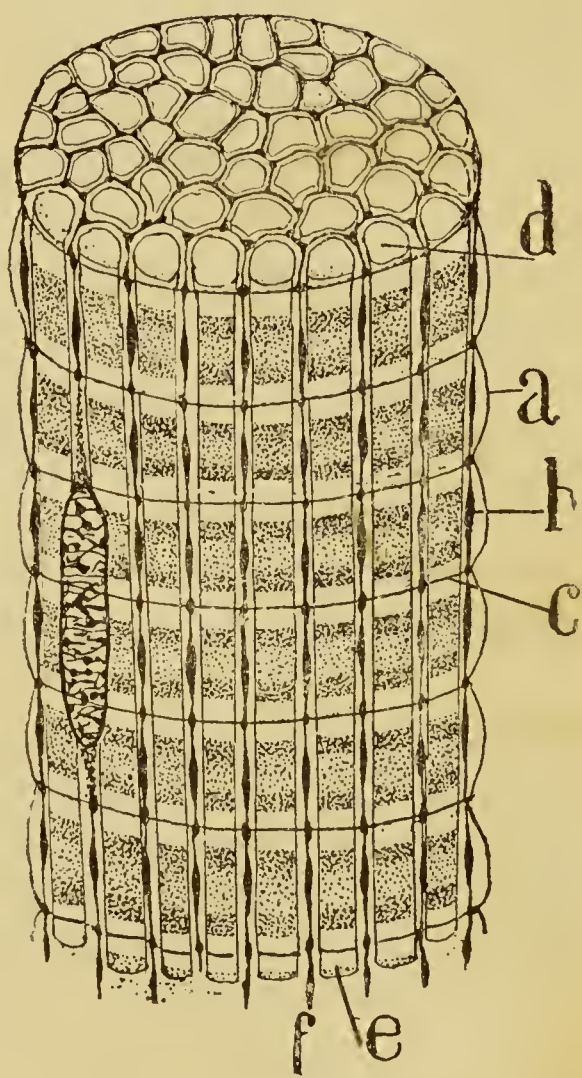 d
a
b
c
f e